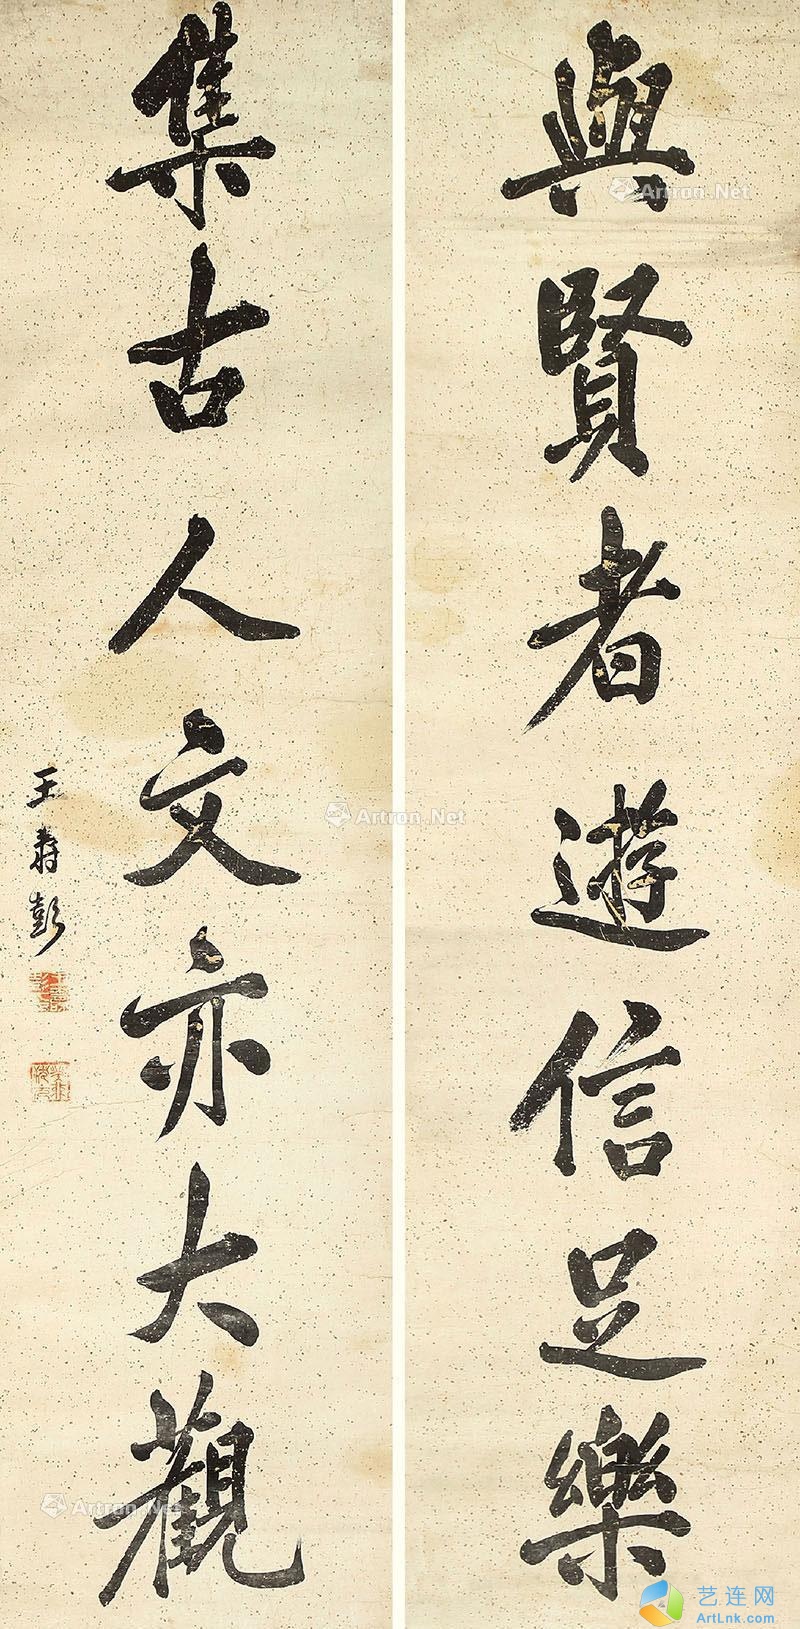 與賢者遊信足樂
集古人文亦大觀
王壽彭
Artron.Net
Artron.Net
Artron.Net
艺连网
ArtLnk.com